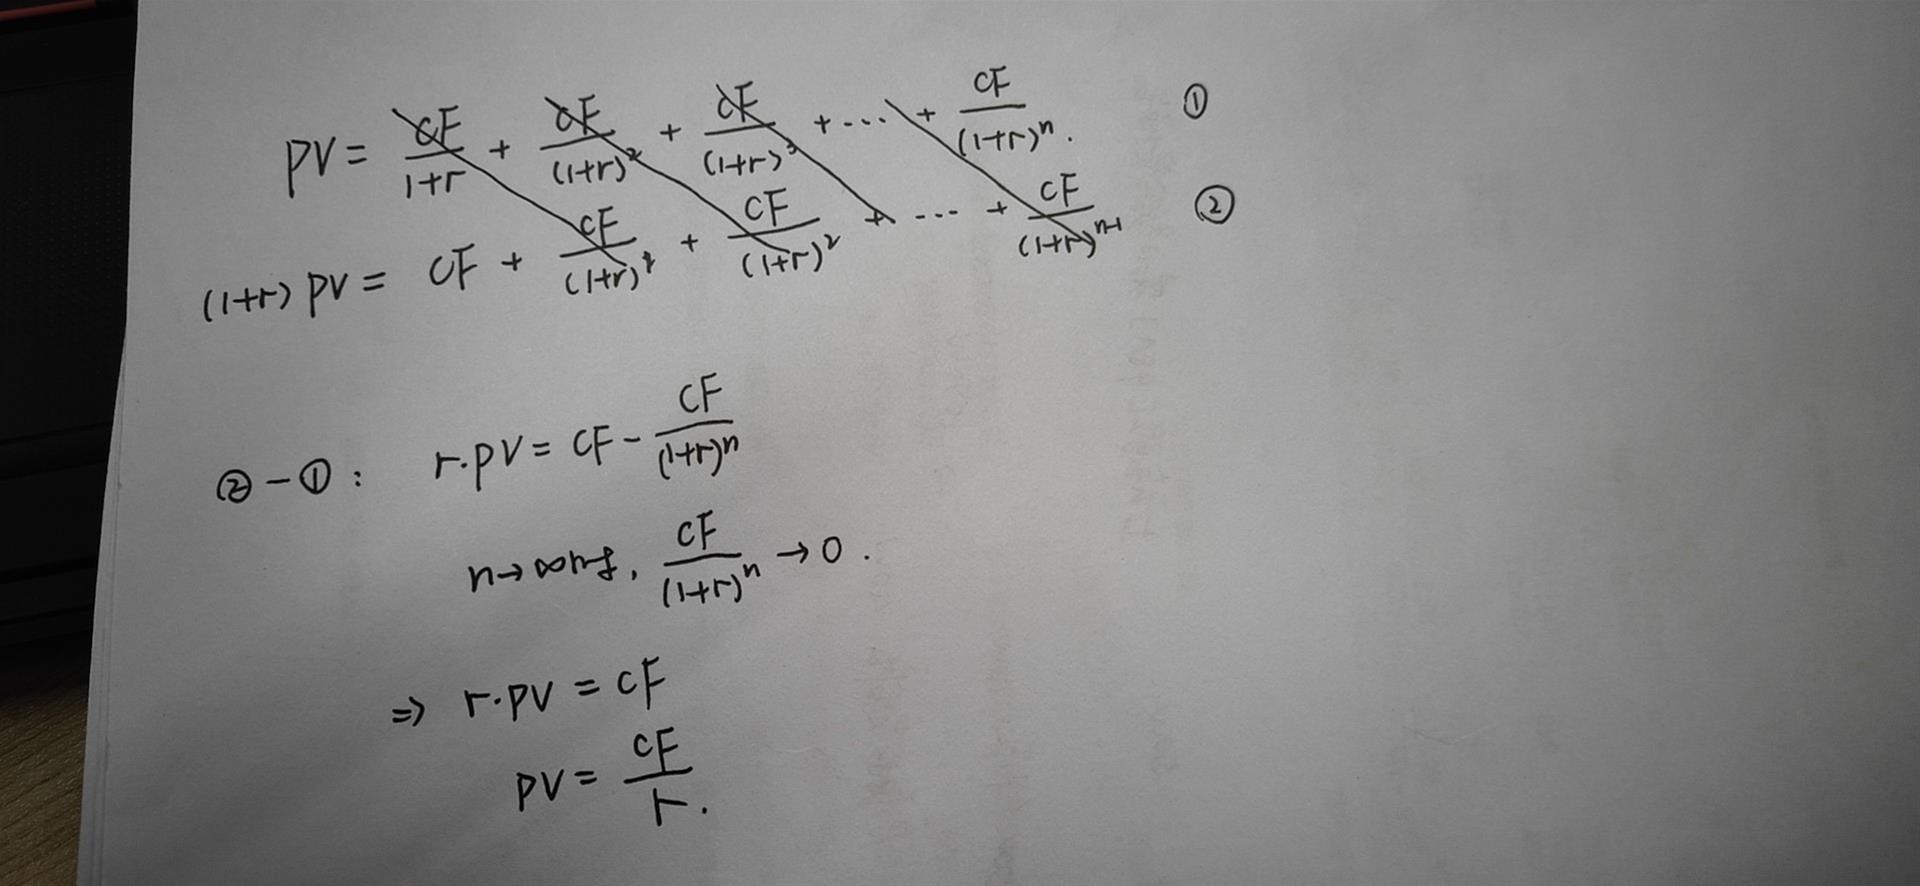 PV = CF/(1+r) + CF/(1+r)² + CF/(1+r)³ + ... + CF/(1+r)ⁿ. ①
(1+r) PV = CF + CF/(1+r)¹ + CF/(1+r)² + ... + CF/(1+r)ⁿ⁻¹ ②
②-①: r·PV = CF - CF/(1+r)ⁿ
n→∞时, CF/(1+r)ⁿ → 0.
⇒ r·PV = CF
PV = CF/r.